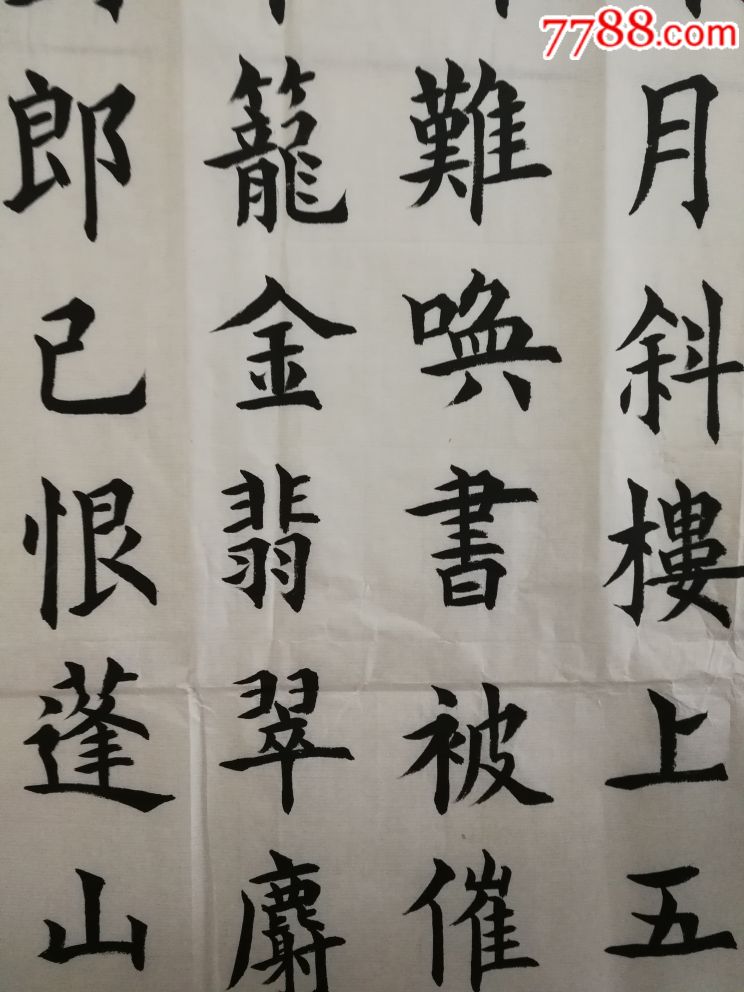 7788.com
月斜樓上五
難喚書被催
籠金翡翠麝
郎已恨蓬山